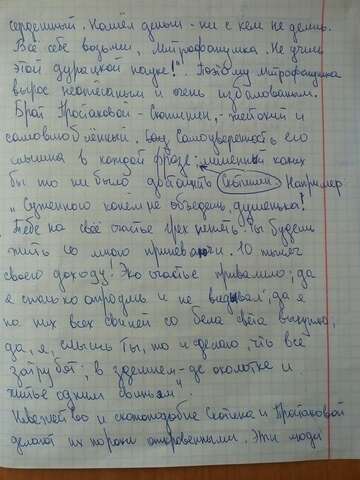 сердешный. Нашёл деньги - ни с кем не делись.
Всё себе возьми, Митрофанушка. Не учись
этой дурацкой науке!". Поэтому Митрофанушка
вырос неотёсаным и очень избалованым.
Брат Простаковой - Скотинин, - жестокий и
самовлюблённый. Самоуверенность его
слышна в каждой фразе: лишенный каких
бы то ни было достоинств Скотинин. Например
"Суженного конём не объедешь, душенька!
Тебе на своё счастье грех пенять. Ты будешь
жить со мною припеваючи. 10 тысяч
своего доходу! Эко счастье привалило; да
я столько отродясь и не видывал; да я
на них всех свиней со бела света выкуплю,
да, я, слышь ты, то и сделаю, что все
затрубят; в здешнем-де околотке и
житье одним свиньям"
Невежество и скотоподобие Скотина и Простаковой
делают их пороки откровенными. Эти люди